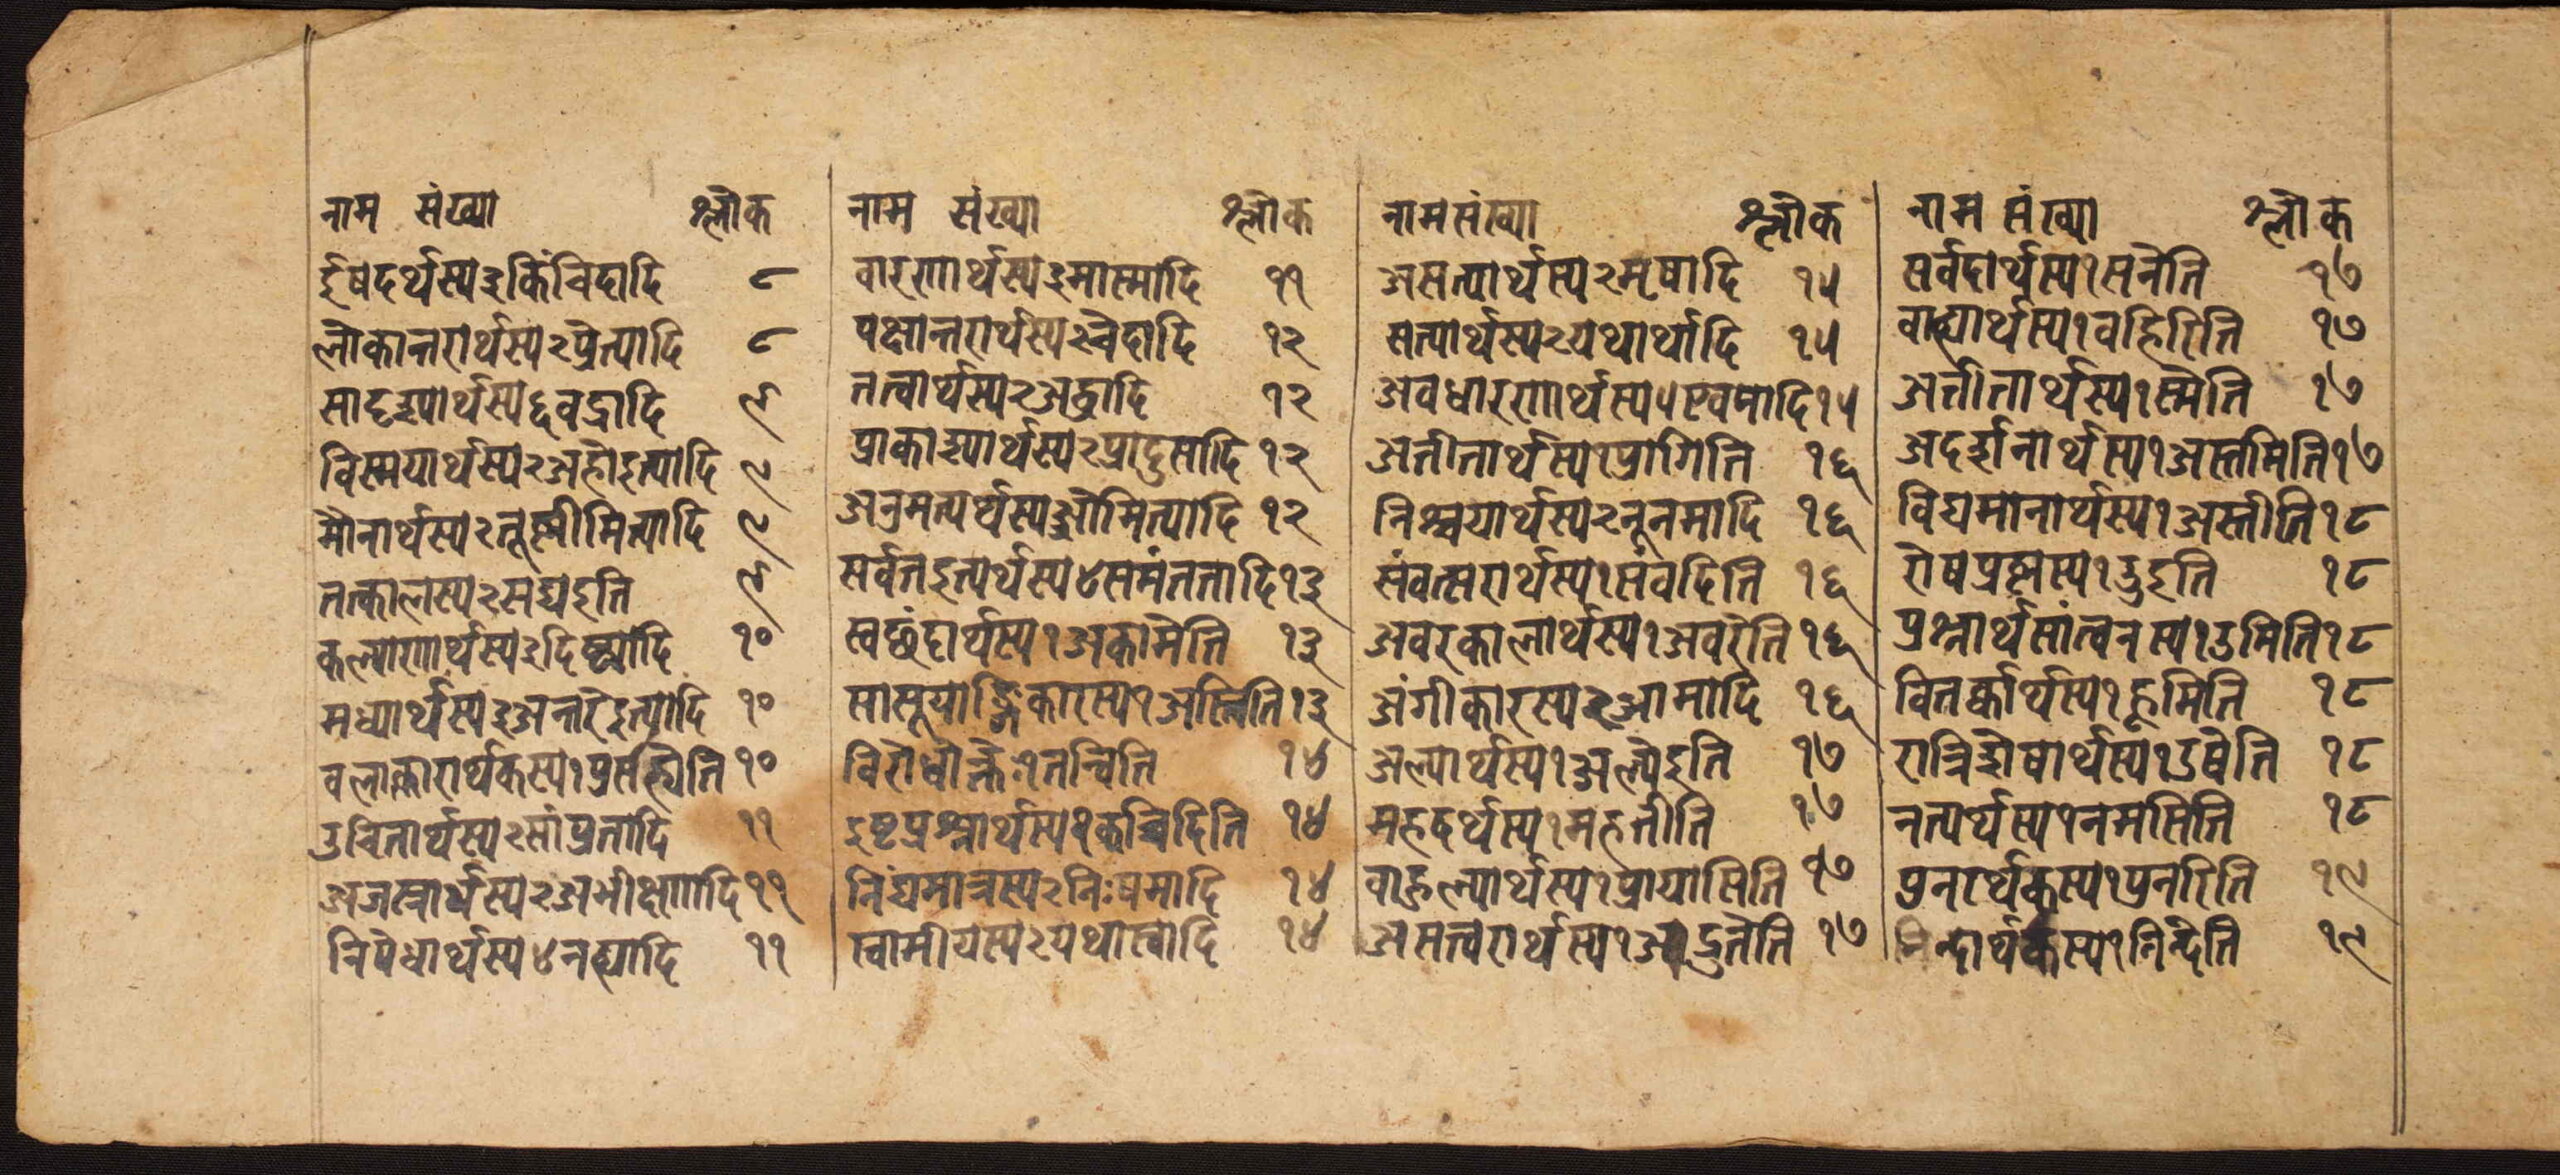 नाम संख्या श्लोक
ईषदर्थस्य३किंचिदादि ८
लोकान्तरार्थस्य२प्रेत्यादि ८
सादृश्यार्थस्य६वद्वादि ९
विस्मयार्थस्य२अहोइत्यादि ९
मौनार्थस्य२तूष्णीमित्यादि ९
तत्कालस्य२सद्यइति ९
कल्याणार्थस्य२दिष्ट्यादि १०
मध्यार्थस्य३अन्तरेइत्यादि १०
वलात्कारार्थकस्य१प्रसह्येति १०
उचितार्थस्य२सांप्रतादि ११
अजस्रार्थस्य२अभीक्ष्णादि ११
निषेधार्थस्य४नह्यादि ११
नाम संख्या श्लोक
वारणार्थस्य३मास्मादि ११
पक्षान्तरार्थस्य२चेदादि १२
तत्वार्थस्य२अद्धादि १२
प्राकाश्यार्थस्य२प्रादुसादि १२
अनुमत्यर्थस्य३ओमित्यादि १२
सर्वतइत्यर्थस्य४समंततादि १३
स्वछंदार्थस्य१अकामेति १३
सासूयाङ्गिकारस्य१अस्त्विति १३
विरोधोक्तौ१तन्विति १४
इष्टप्रश्नार्थस्य१कच्चिदिति १४
निंद्यमात्रस्य२निःषमादि १४
स्वामीयस्य२यथास्वादि १४
नाम संख्या श्लोक
असत्यार्थस्य२मृषादि १५
सत्यार्थस्य२यथार्थादि १५
अवधारणार्थस्य५एवमादि १५
अतीतार्थस्य१प्रागिति १६
निश्चयार्थस्य२नूनमादि १६
संवत्सरार्थस्य१संवदिति १६
अवरकालार्थस्य१अवरेति १६
अंगीकारस्य२आमादि १६
अल्पार्थस्य१अल्पेइति १७
महदर्थस्य१महतीति १७
वाहुल्यार्थस्य१प्रायासिति १७
असत्वरार्थस्य१अद्रुतेति १७
नाम संख्या श्लोक
सर्वदार्थस्य१सनेति १७
वाह्यार्थस्य१वहिरिति १७
अतीतार्थस्य१स्मेति १७
अदर्शनार्थस्य१अस्तमिति १७
विद्यमानार्थस्य१अस्तीति १८
रोषप्रश्नस्य१उइति १८
प्रश्नार्थसांत्वनस्य१उमिति १८
वितर्क्कार्थस्य१हूमिति १८
रात्रिशेषार्थस्य१उषेति १८
नत्यर्थस्य१नमसिति १८
पुनरर्थकस्य१पुनरिति १९
निन्दार्थकस्य१निन्देति १९